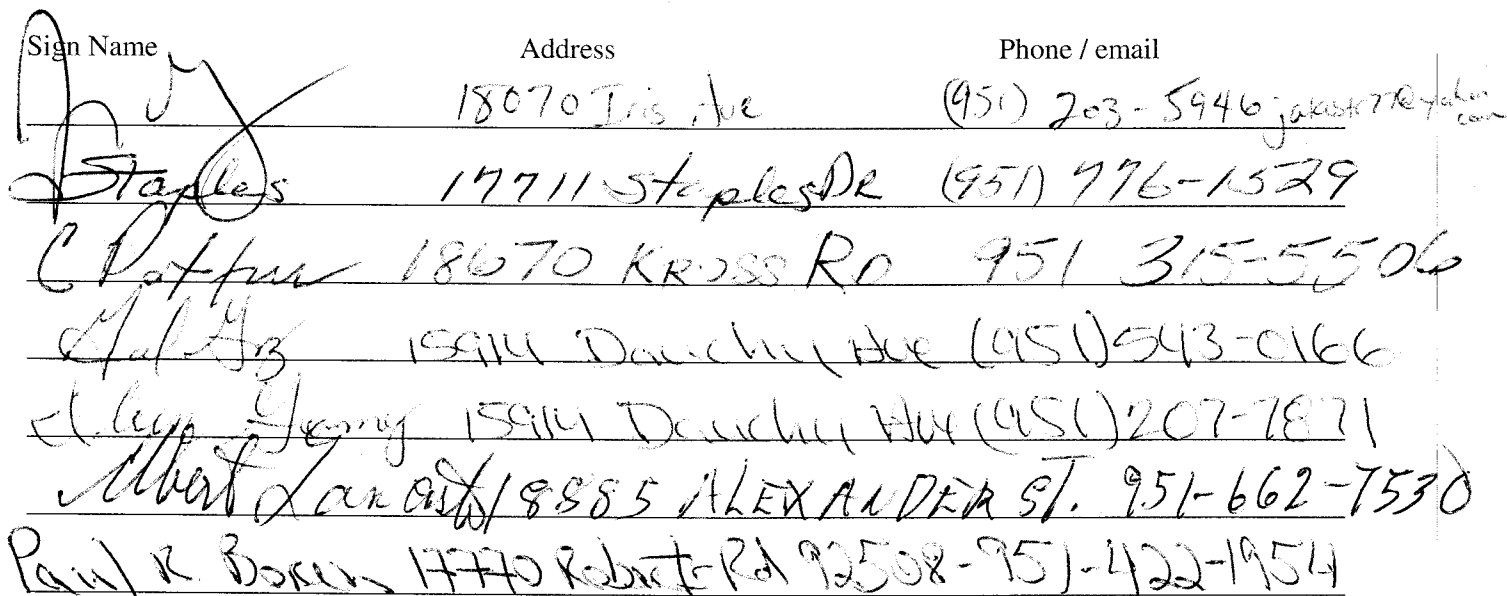 Sign Name Address Phone / email
18070 Iris Ave (951) 203-5946
Staples 17711 Staples DR (951) 776-1529
C 18670 KROSS RD 951 315-5506
15914 Dauchy Ave (951) 543-0166
15914 Dauchy Ave (951) 207-7871
Albert Lancaster 18885 ALEXANDER ST. 951-662-7530
Paul R. 17770 Roberts Rd 92508-951-422-1954